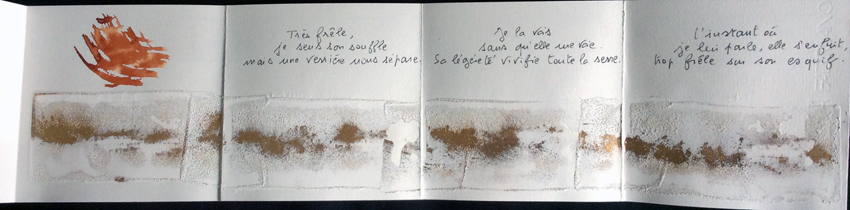 Très frêle,
je sens son souffle
mais une verrière nous sépare.
Je la vois
sans qu'elle me voie.
Sa légèreté vivifie toute la serre.
L'instant où
je lui parle, elle s'enfuit,
trop frêle sur son esquif.